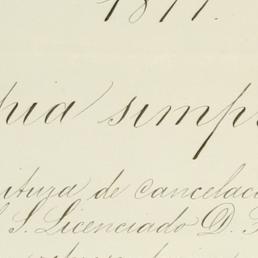 1877.
pia simp
itura de cancelac
l S. Licenciado D. F